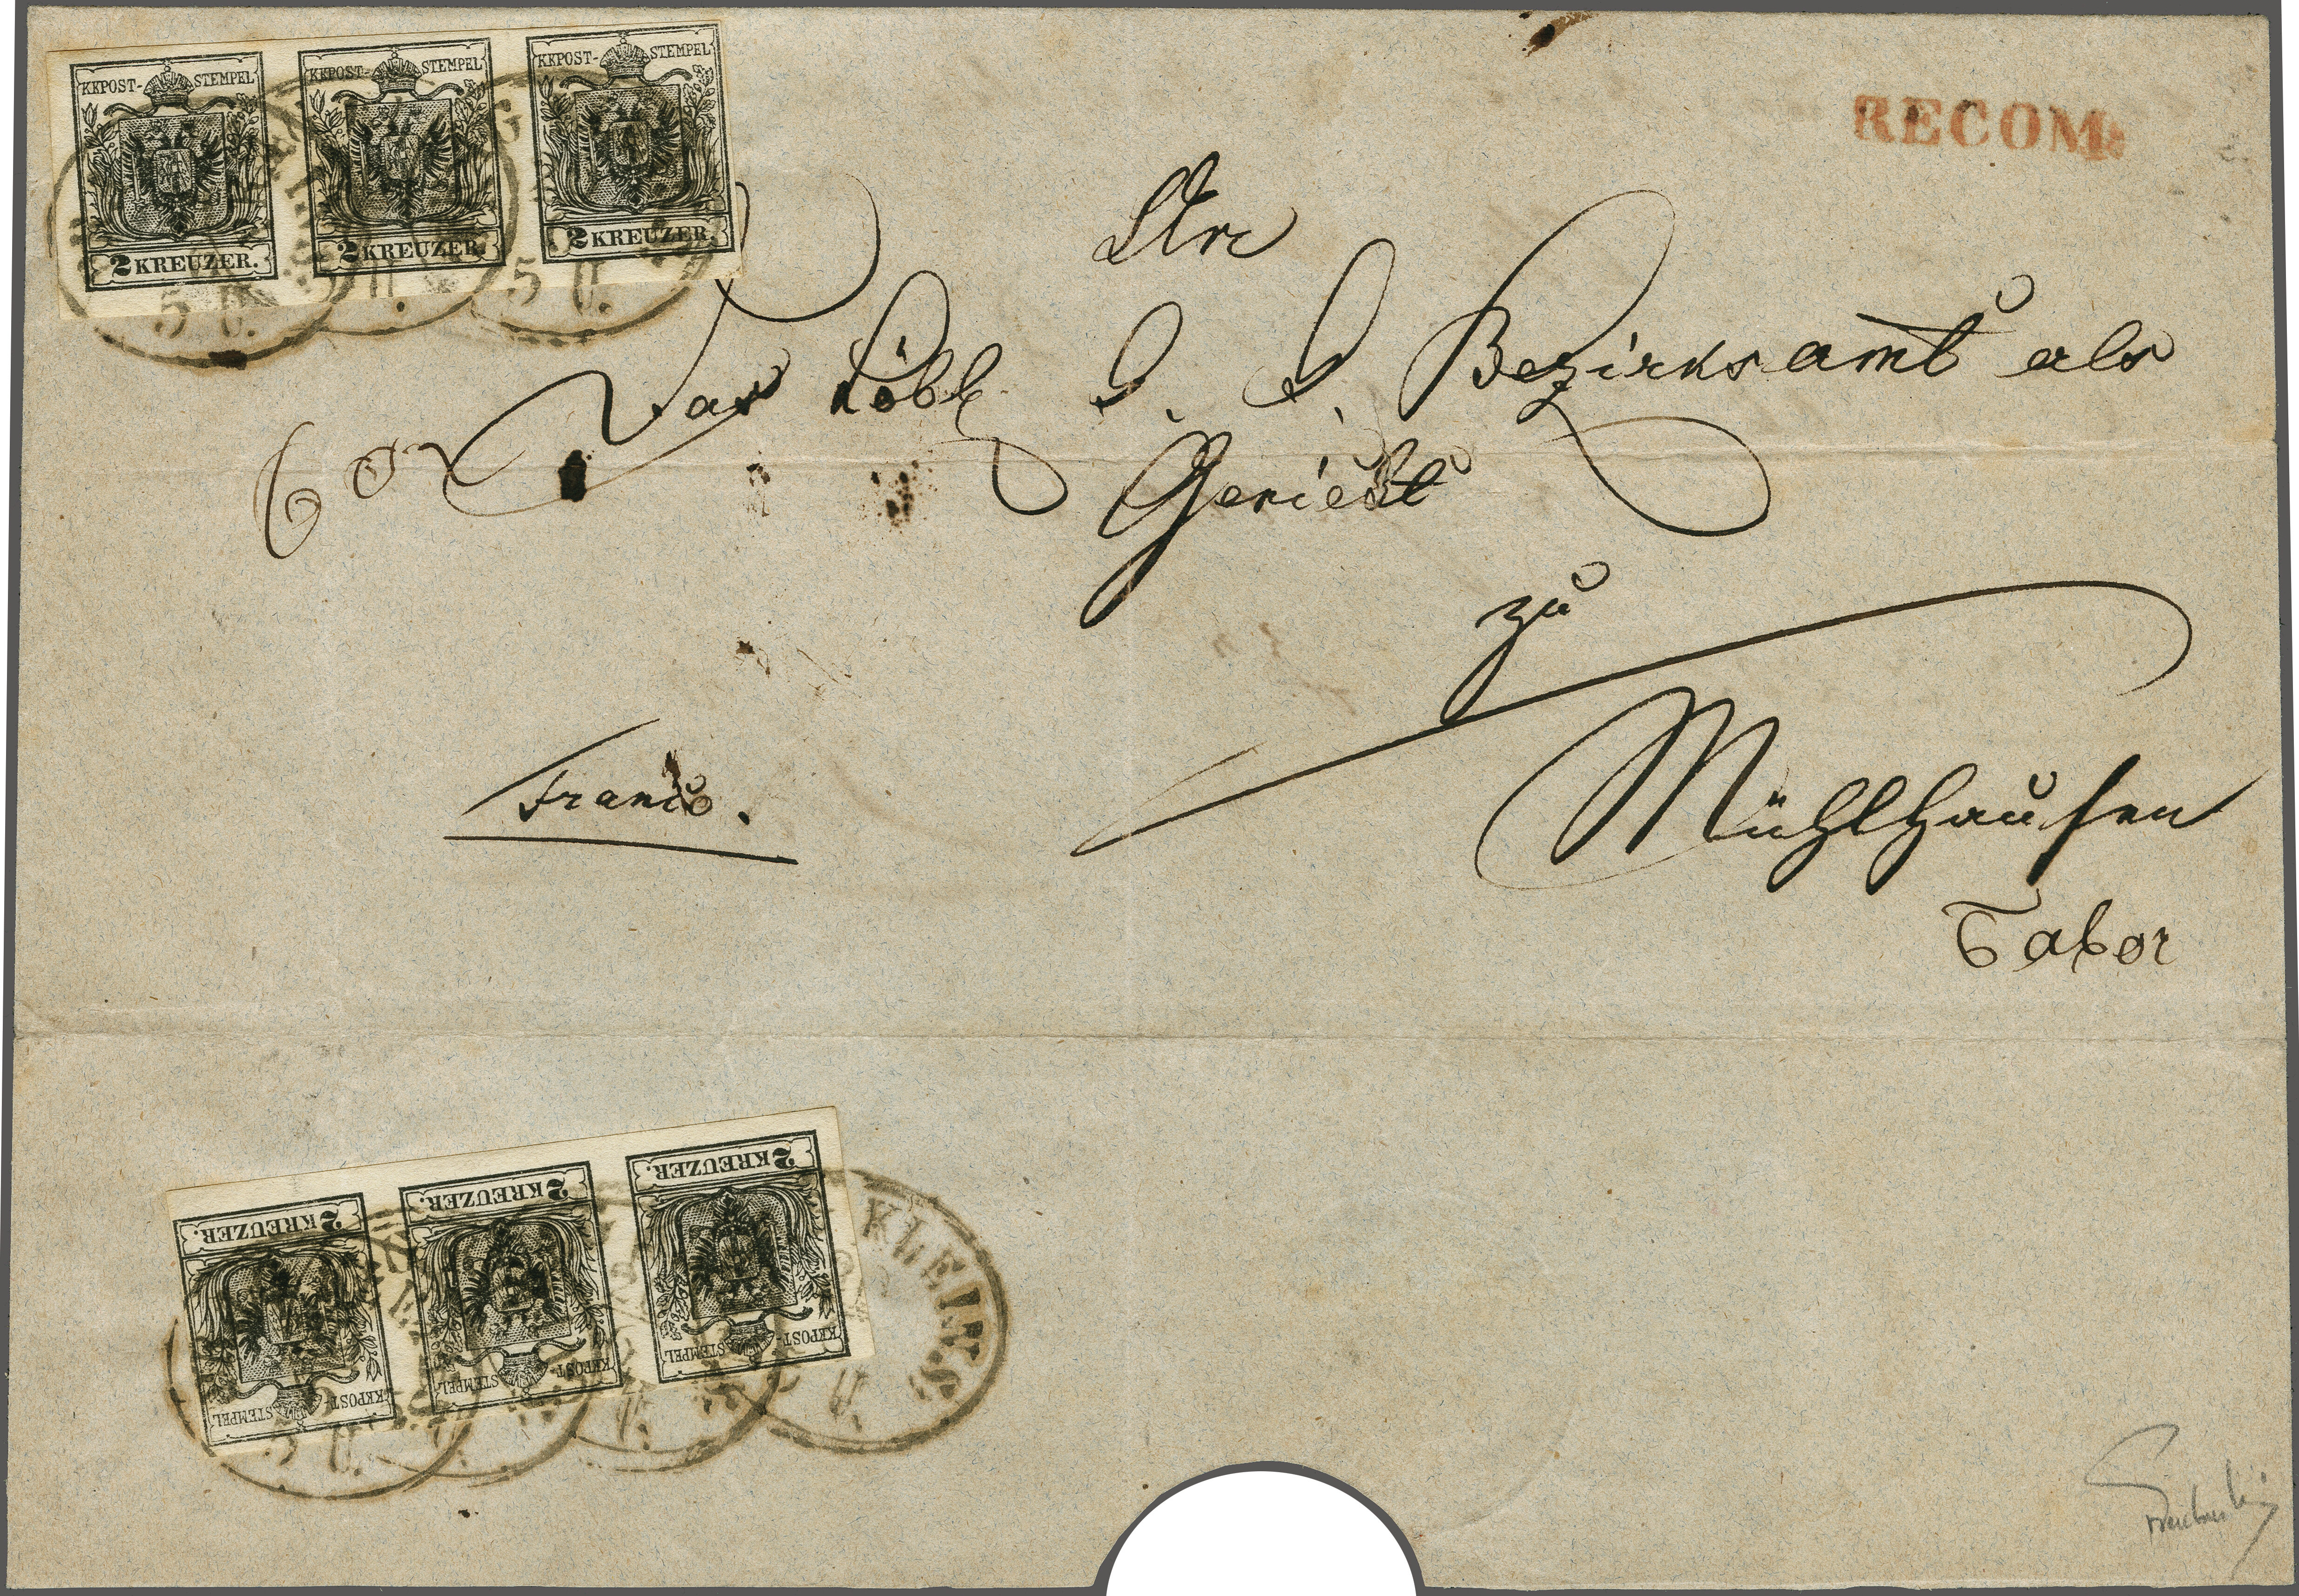 KKPOST-STEMPEL KKPOST-STEMPEL KKPOST-STEMPEL
2 KREUZER. 2 KREUZER. 2 KREUZER.
5 U. U. 5 U.
RECOM:
Das Löbl. k. k. Bezirksamt als
Gericht
zu
Mühlhausen
Tabor
Franco.
2 KREUZER. 2 KREUZER. 2 KREUZER.
KKPOST-STEMPEL KKPOST-STEMPEL KKPOST-STEMPEL
KLEIN.
5 U. U. U.